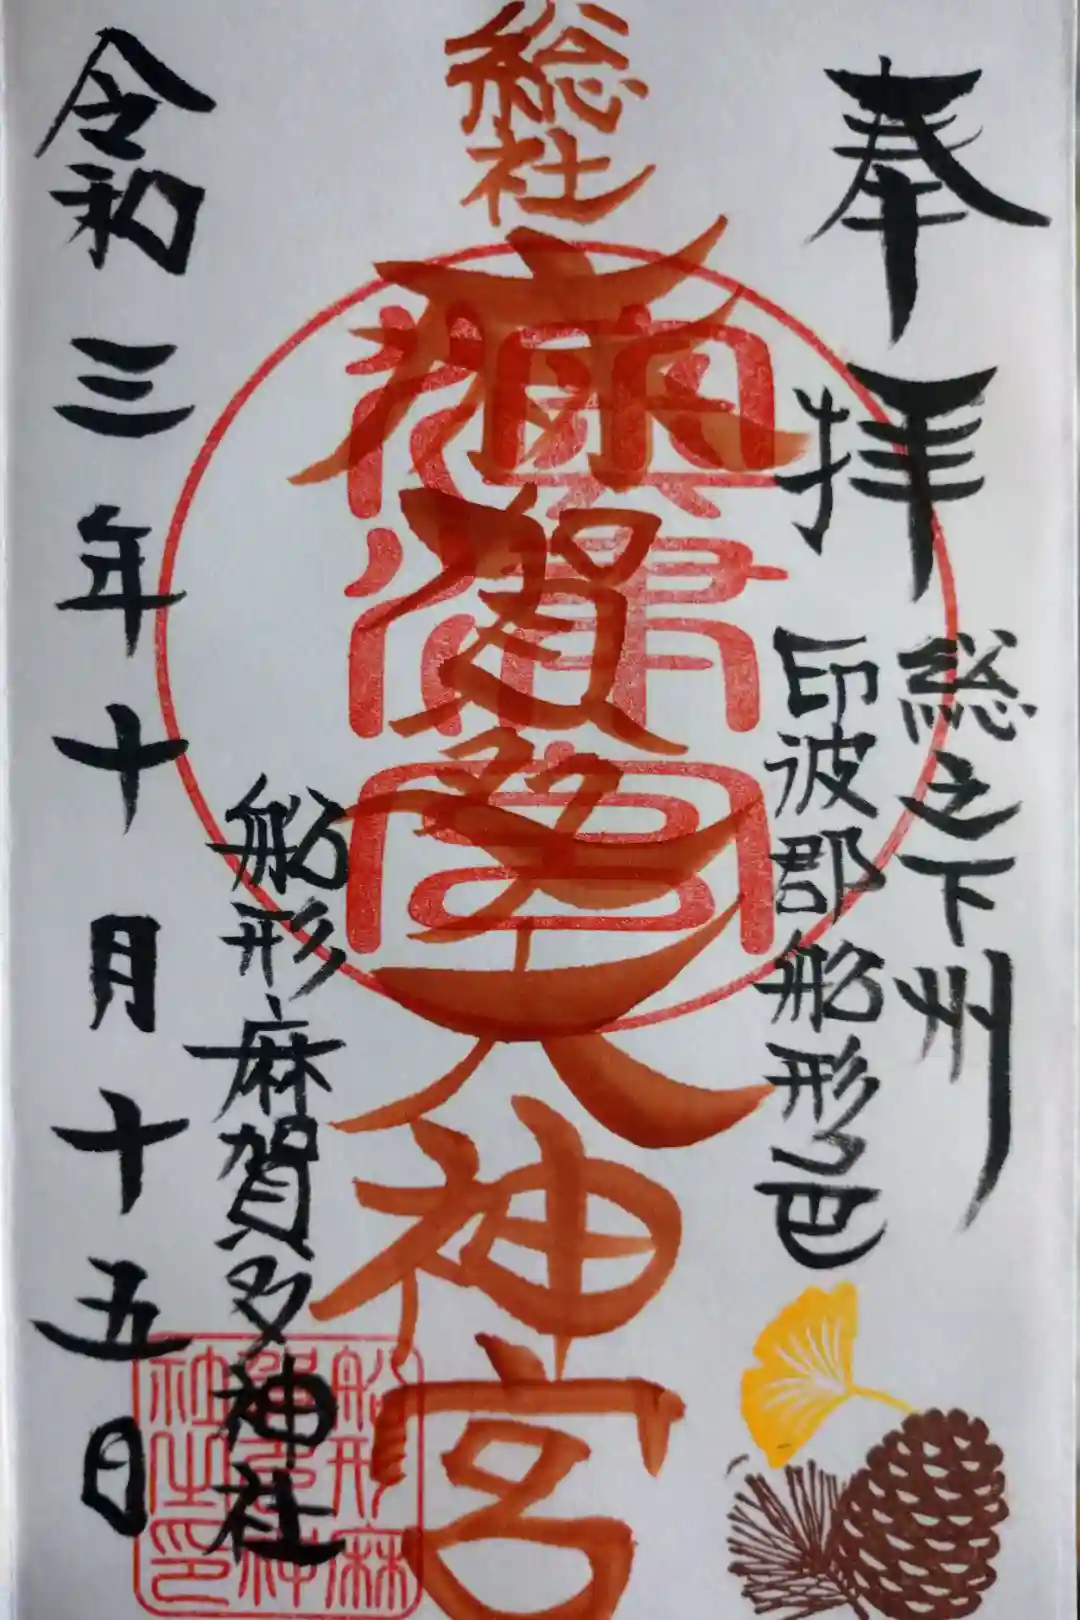 奉拝
総之下州
印波郡船形邑
総社
麻賀多大神宮
船形麻賀多神社
令和三年十月十五日
船形麻
賀多神
社之印